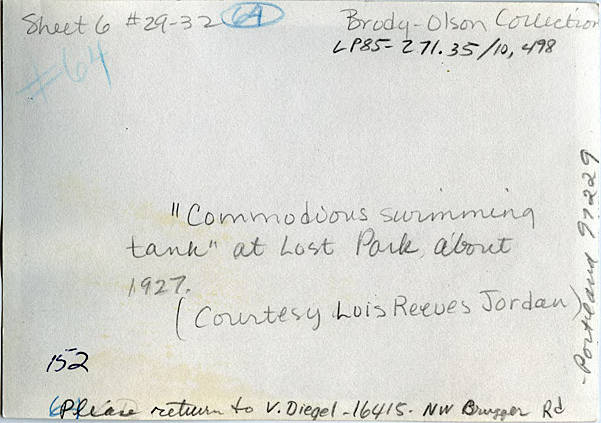 Sheet 6 #29-32 64 Brody-Olson Collection
LP85-271.35/10,498
#64
"Commodious swimming
tank" at Lost Park, about
1927.
(Courtesy Lois Reeves Jordan)
152
Please return to V. Diegel-16415- NW Brugger Rd
-Portland 97229